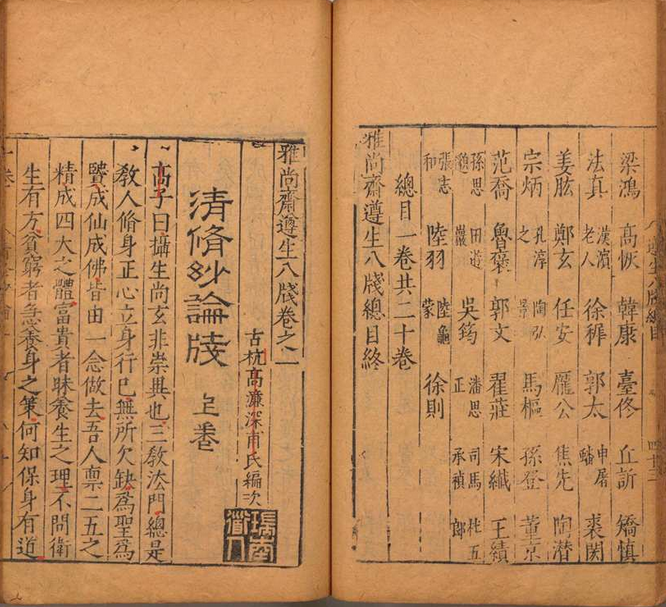 八遵生八牋總目 四十二
梁鴻 高恢 韓康 臺佟 丘訢 矯慎
法真 漢濱老人 徐穉 郭太 申屠蟠 袁閎
姜肱 鄭玄 任安 龐公 焦先 陶潛
宗炳 孔淳之 陶弘景 馬樞 孫登 董京
范喬 魯褒 郭文 翟莊 宋纖 王績
孫思邈 田遊巖 吳筠 潘思正 司馬承禎 杜五郎
張志和 陸羽 陸龜蒙 徐則
總目一卷共二十卷
雅尚齋遵生八牋總目終
雅尚齋遵生八牋卷之二
古杭高濂深甫氏編次
瑞南道人
清脩玅論牋 上卷
高子曰攝生尚玄非崇異也三教法門總是
教人脩身正心立身行己無所欠缺爲聖爲
賢成仙成佛皆由一念做去吾人禀二五之
精成四大之體富貴者昧養生之理不問衛
生有方貧窮者急養身之策何知保身有道